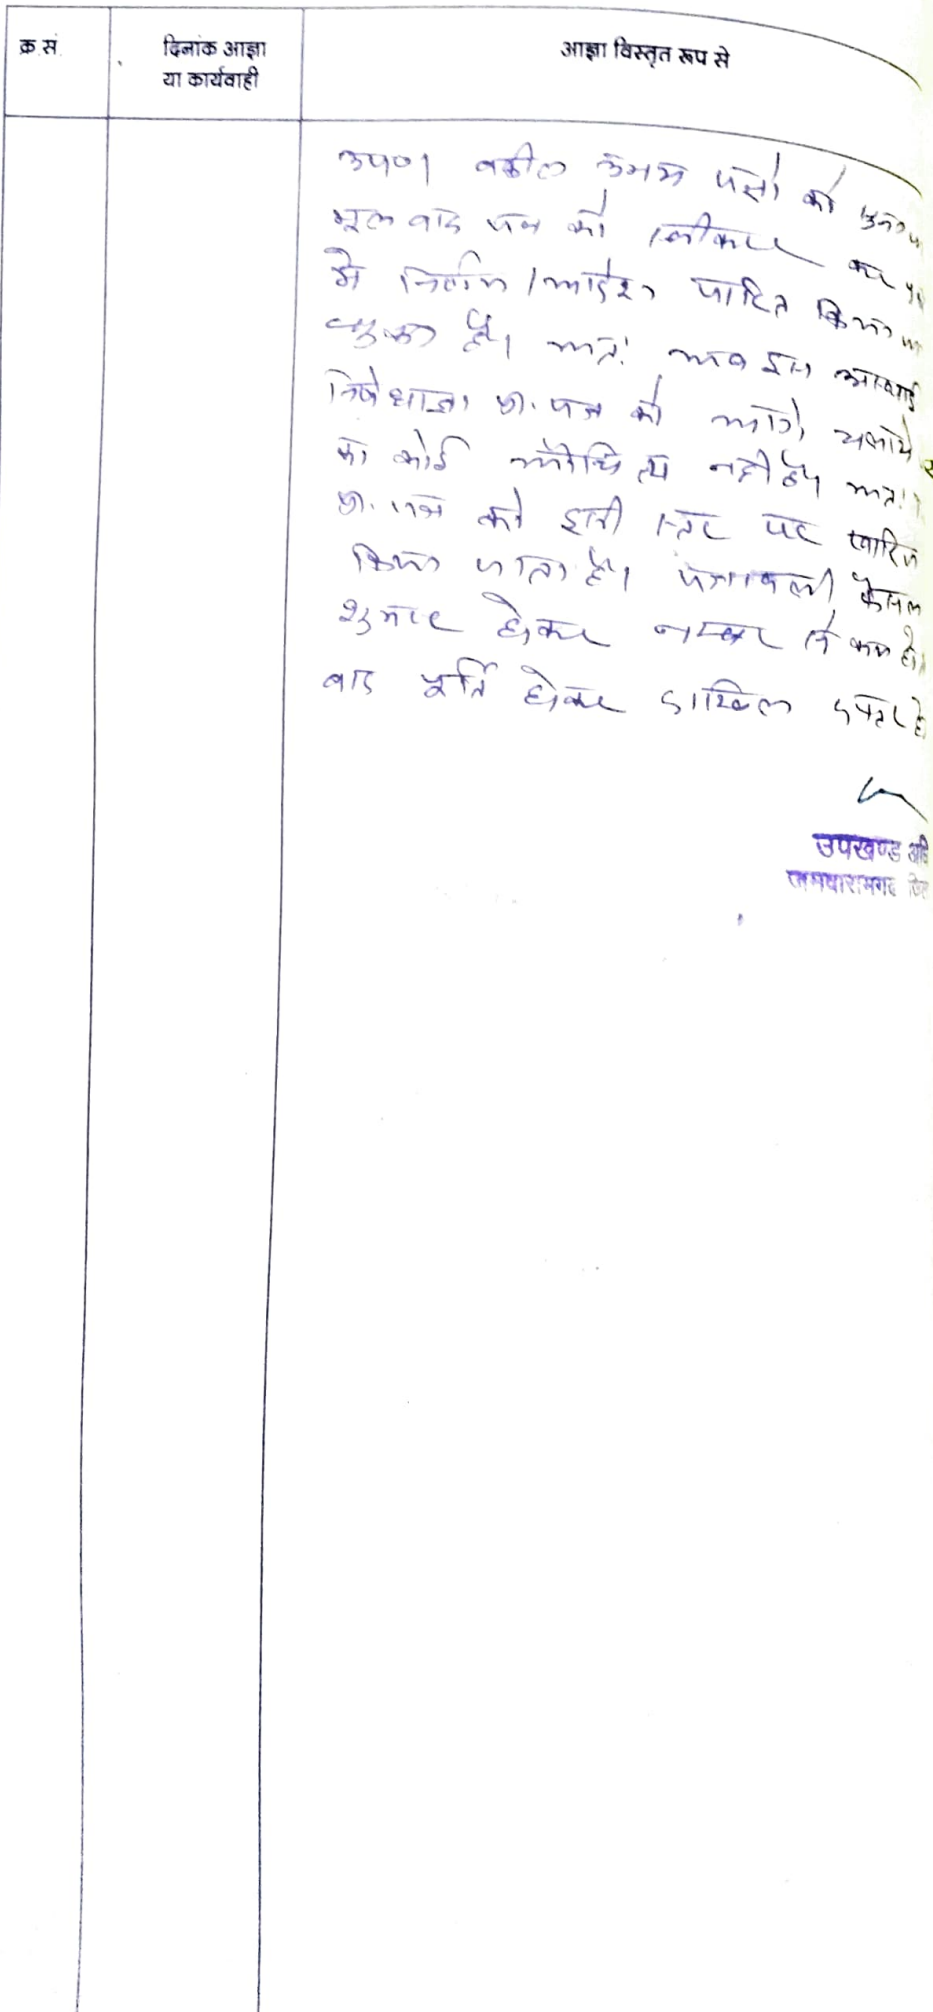 क्र.सं.
दिनांक आज्ञा
या कार्यवाही
आज्ञा विस्तृत रूप से
उप०। वकील उभय पक्षों को
मूल वाद पत्र को स्वीकार कर
मे निर्णय/आदेश पारित किया
चुका है। अतः अब इस अस्थाई
निषेधाज्ञा प्रा. पत्र को आगे चलाये
का कोई औचित्य नही है। अतः
प्रा. पत्र को इसी स्तर पर खारिज
किया जाता है। पत्रावली फैसल
शुमार होकर नम्बर से कम हो।
बाद पूर्ति होकर दाखिल दफ्तर हो
उपखण्ड अधि
जमवारामगढ़